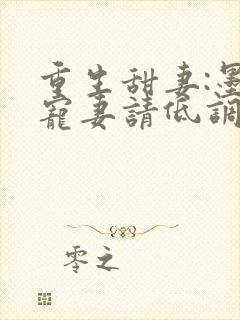 重生甜妻:墨
寵妻請低調
零之